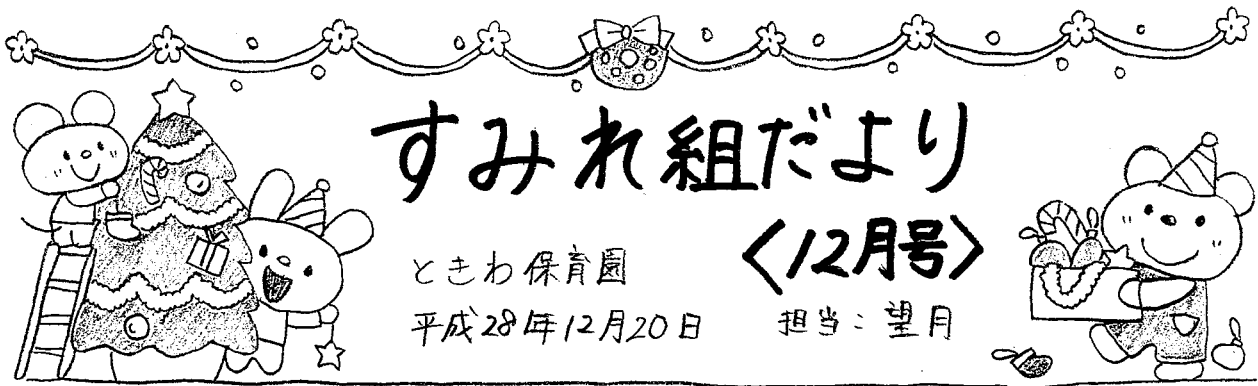 すみれ組だより
〈12月号〉
ときわ保育園
平成28年12月20日 担当：望月